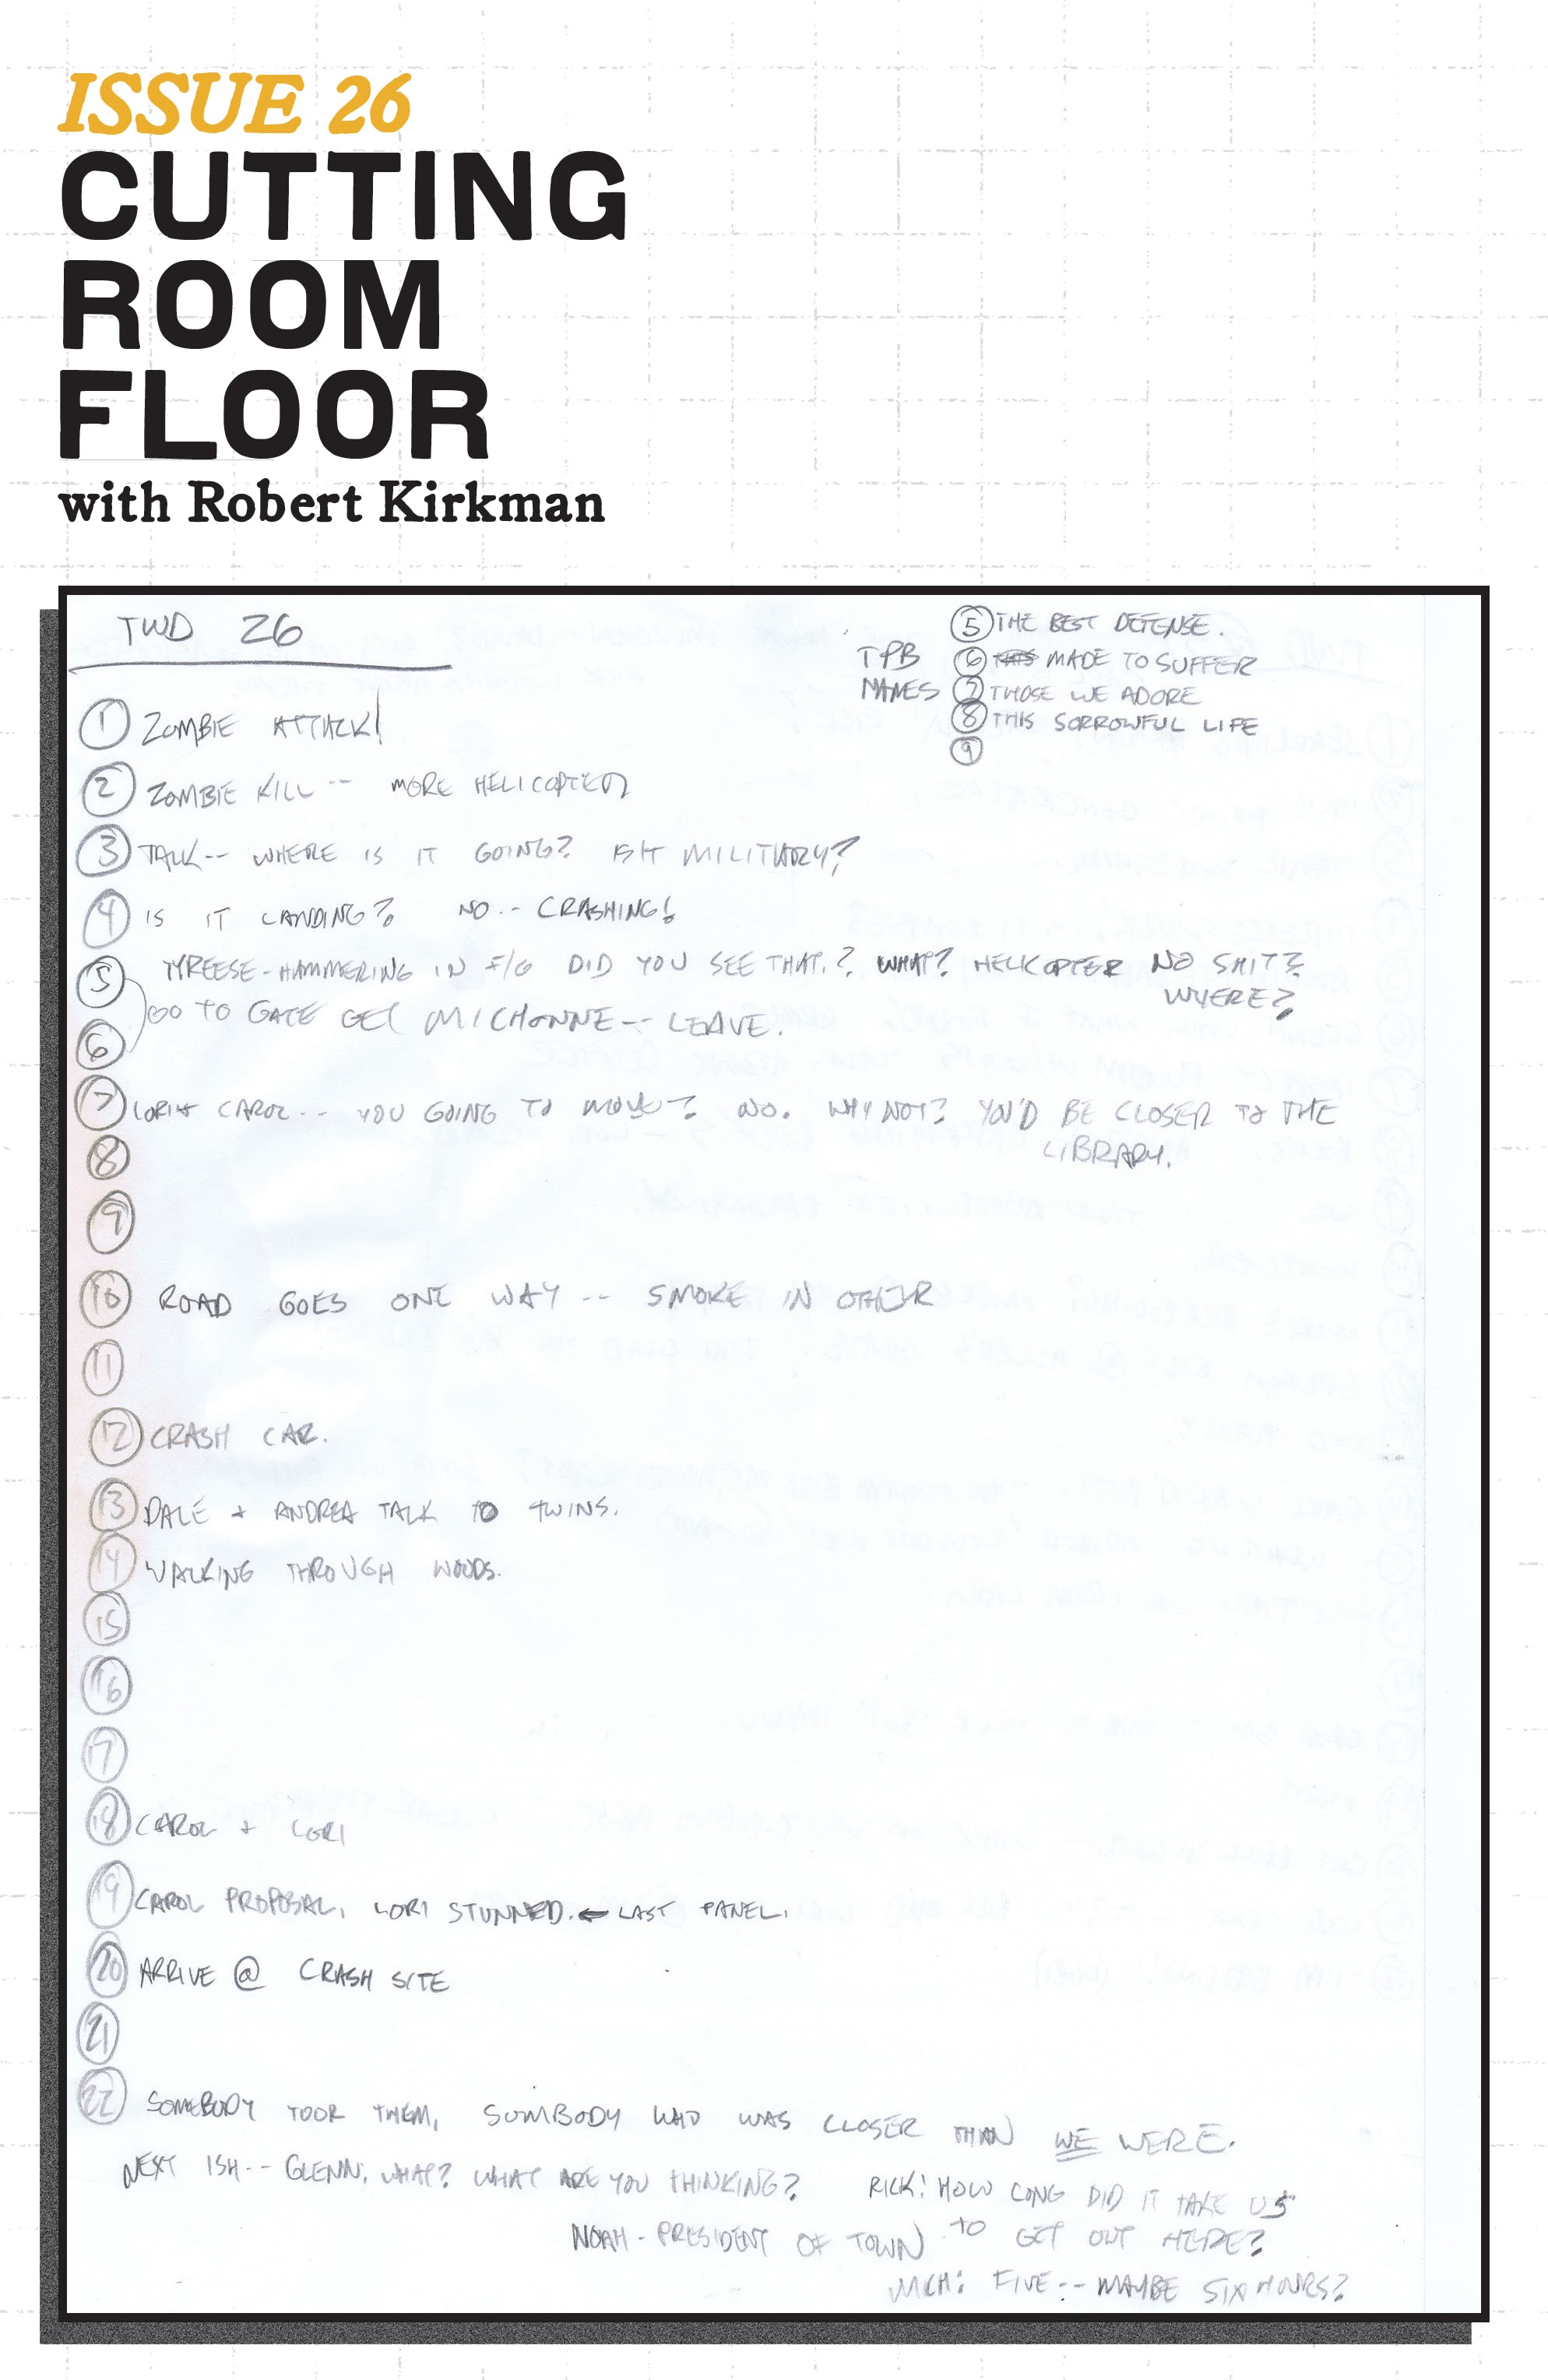 ISSUE 26
CUTTING
ROOM
FLOOR
with Robert Kirkman
TWD 26
TPB
NAMES
⑤ THE BEST DEFENSE
⑥ MADE TO SUFFER
⑦ THOSE WE ADORE
⑧ THIS SORROWFUL LIFE
⑨
① ZOMBIE ATTACK!
② ZOMBIE KILL -- MORE HELICOPTER
③ TALK -- WHERE IS IT GOING? IS IT MILITARY?
④ IS IT LANDING? NO -- CRASHING!
⑤ TYREESE - HAMMERING IN F/G DID YOU SEE THAT? WHAT? HELICOPTER NO SHIT?
WHERE?
GO TO GATE GET MICHONNE -- LEAVE.
⑥
⑦ LORI + CAROL -- YOU GOING TO MOVE? NO. WHY NOT? YOU'D BE CLOSER TO THE
LIBRARY.
⑧
⑨
⑩ ROAD GOES ONE WAY -- SMOKE IN OTHER
⑪
⑫ CRASH CAR.
⑬ DALE + ANDREA TALK TO TWINS.
⑭ WALKING THROUGH WOODS.
⑮
⑯
⑰
⑱ CAROL + LORI
⑲ CAROL PROPOSAL, LORI STUNNED. ← LAST PANEL.
⑳ ARRIVE @ CRASH SITE
㉑
㉒ SOMEBODY TOOK THEM, SOMBODY WHO WAS CLOSER THAN WE WERE.
NEXT ISH -- GLENN, WHAT? WHAT ARE YOU THINKING? RICK: HOW LONG DID IT TAKE US
TO GET OUT HERE?
NOAH - PRESIDENT OF TOWN
MICH: FIVE -- MAYBE SIX HOURS?